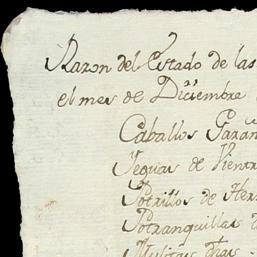 Razon del Estado de las
el mes de Diciembre
Caballos Garan
Yeguas de Vientr
Potrillos de Her
Potranquillas d
Mulitas